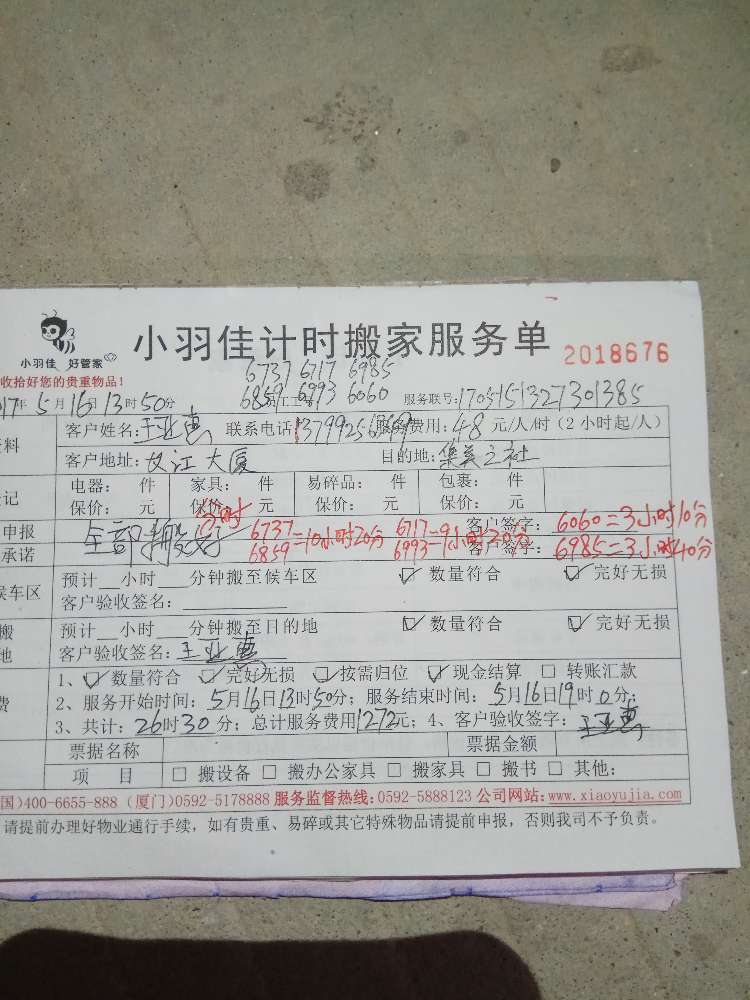 小羽佳计时搬家服务单
小羽佳 好管家
2018676
收拾好您的贵重物品!
6737 6717 6985
6859 6993 6060
服务联号:1705151327301385
17年5月16日13时50分
客户姓名:王亚惠 联系电话 服务费用:48元/人/时(2小时起/人)
客户地址: 江大厦 目的地:集美之社
电器: 件 家具: 件 易碎品: 件 包裹: 件
保价: 元 保价: 元 保价: 元 保价: 元
申报
承诺
全部搬好
客户签字: 6060=3小时10分
6737 =10小时20分 6717=9小时20分
6859 6993
客户签字: 6985=3小时40分
候车区
预计__小时___分钟搬至候车区 ☑ 数量符合 ☑ 完好无损
客户验收签名:
预计__小时___分钟搬至目的地 ☑ 数量符合 ☑ 完好无损
客户验收签名:王亚惠
1、☑数量符合 ☑完好无损 ☑按需归位 ☑现金结算 □ 转账汇款
2、服务开始时间:5月16日13时50分;服务结束时间:5月16日19时0分;
3、共计:26时30分;总计服务费用1272元;4、客户验收签字:王亚惠
票据名称 票据金额
项 目 □ 搬设备 □ 搬办公家具 □ 搬家具 □ 搬书 □ 其他:
国)400-6655-888 (厦门)0592-5178888 服务监督热线:0592-5888123 公司网站:www.xiaoyujia.com
请提前办理好物业通行手续,如有贵重、易碎或其它特殊物品请提前申报,否则我司不予负责。